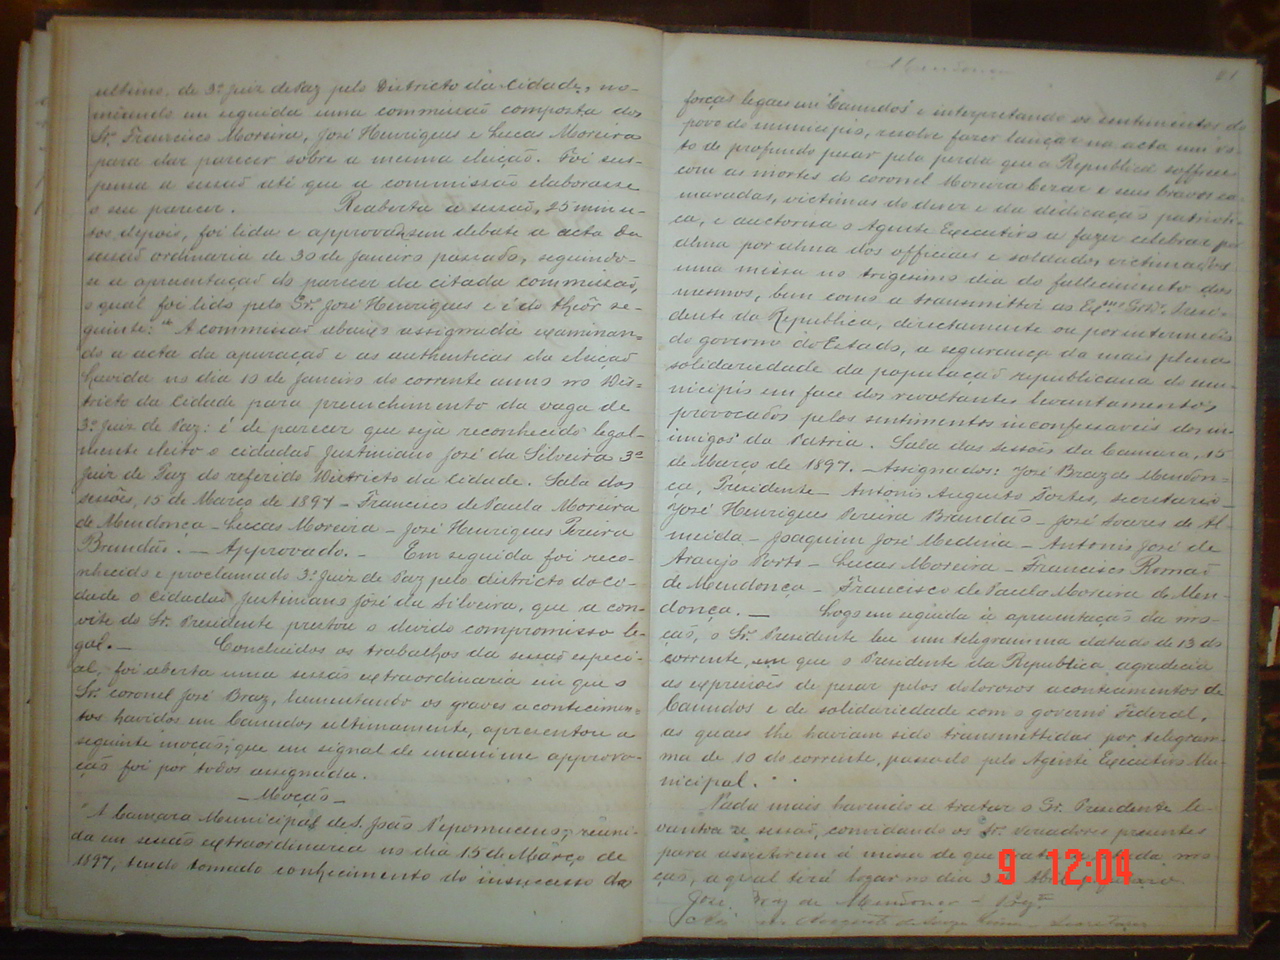 ultimo, de 3º Juiz de Paz pelo Districto da Cidade, no-
meando em seguida uma commissão composta dos
Srs. Francisco Moreira, José Henriques e Lucas Moreira
para dar parecer sobre a mesma eleição. Foi sus-
pensa a sessão até que a commissão elaborasse
o seu parecer. Reaberta a sessão, 25 minu-
tos depois, foi lida e approvada sem debate a acta da
sessão ordinaria de 30 de Janeiro passado, seguindo-
se a apresentação do parecer da citada commissão,
o qual foi lido pelo Sr. José Henriques e é do theôr se-
guinte: "A commissão abaixo assignada examinan-
do a acta da apuração e as authenticas da eleição
havida no dia 10 de Janeiro do corrente anno no Dis-
tricto da Cidade para preenchimento da vaga de
3º Juiz de Paz: é de parecer que seja reconhecido legal-
mente eleito o cidadão Justiniano José da Silveira 3º
Juiz de Paz do referido Districto da Cidade. Sala das
sessões, 15 de Março de 1897 - Francisco de Paula Moreira
de Mendonça - Lucas Moreira - José Henriques Pereira
Brandão". - Approvado. - Em seguida foi reco-
nhecido e proclamado 3º Juiz de Paz pelo districto da ci-
dade o cidadão Justiniano José da Silveira, que a con-
vite do Sr. Presidente prestou o devido compromisso le-
gal. - Concluidos os trabalhos da sessão especi-
al, foi aberta uma sessão extraordinaria em que o
Sr. coronel José Braz, lamentando os graves acontecimen-
tos havidos em Canudos ultimamente, apresentou a
seguinte moção, que em signal de unanime approva-
ção foi por todos assignada.
- Moção -
"A Camara Municipal de S. João Nepomuceno, reuni-
da em sessão extraordinaria no dia 15 de Março de
1897, tendo tomado conhecimento do insuccesso das
Mendonça
forças legaes em "Canudos" e interpretando os sentimentos do
povo do municipio, resolve fazer lançar na acta um vo-
to de profundo pesar pela perda que a Republica soffreu
com as mortes do coronel Moreira Cezar e seus bravos ca-
maradas, victimas do dever e da dedicação patrioti-
ca, e auctorisa o Agente Executivo a fazer celebrar por
alma por alma dos officiaes e soldados victimados
uma missa no trigesimo dia do fallecimento dos
mesmos, bem como a transmittir ao Exmo. Presi-
dente da Republica, directamente ou por intermedio
do governo do Estado, a segurança da mais plena
solidariedade da população republicana do mu-
nicipio em face dos revoltantes levantamentos
provocados pelos sentimentos inconfessaveis dos in-
imigos da Patria. Sala das sessões da Camara, 15
de Março de 1897. - Assignados: José Braz de Mendon-
ça, Presidente - Antonio Augusto Fortes, secretario -
José Henriques Pereira Brandão - José Soares de Al-
meida - Joaquim José Medina - Antonio José de
Araujo Porto - Lucas Moreira - Francisco Romão
de Mendonça - Francisco de Paula Moreira de Men-
donça. - Logo em seguida á apresentação da mo-
ção, o Sr. Presidente leu um telegramma datado de 13 do
corrente, em que o Presidente da Republica agradecia
as expressões de pesar pelos dolorosos acontecimentos de
Canudos e de solidariedade com o governo Federal,
as quaes lhe haviam sido transmittidas por telegram-
ma de 10 do corrente, passado pelo Agente Executivo Mu-
nicipal.
Nada mais havendo a tratar o Sr. Presidente le-
vantou a sessão, convidando os Srs. vereadores presentes
para assistirem á missa de que a mo-
ção, a qual terá logar no dia
José Braz de Mendonça -
9 12:04